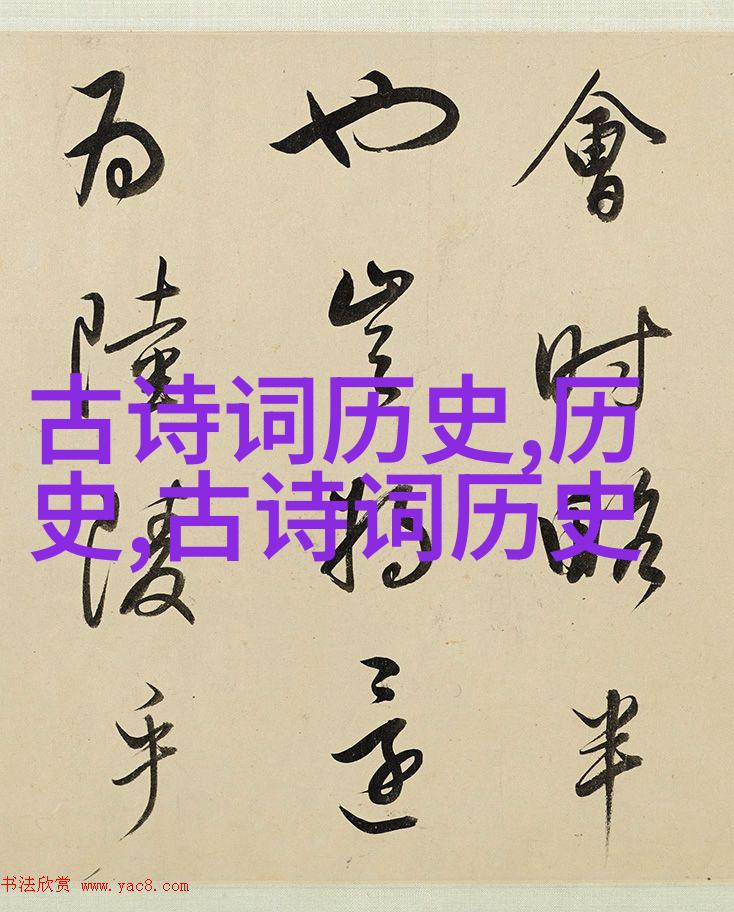 會時略半
也豈將還
為陸陵乎
古诗词历史,历
史,古诗词历史
书法欣赏 www.yac8.com